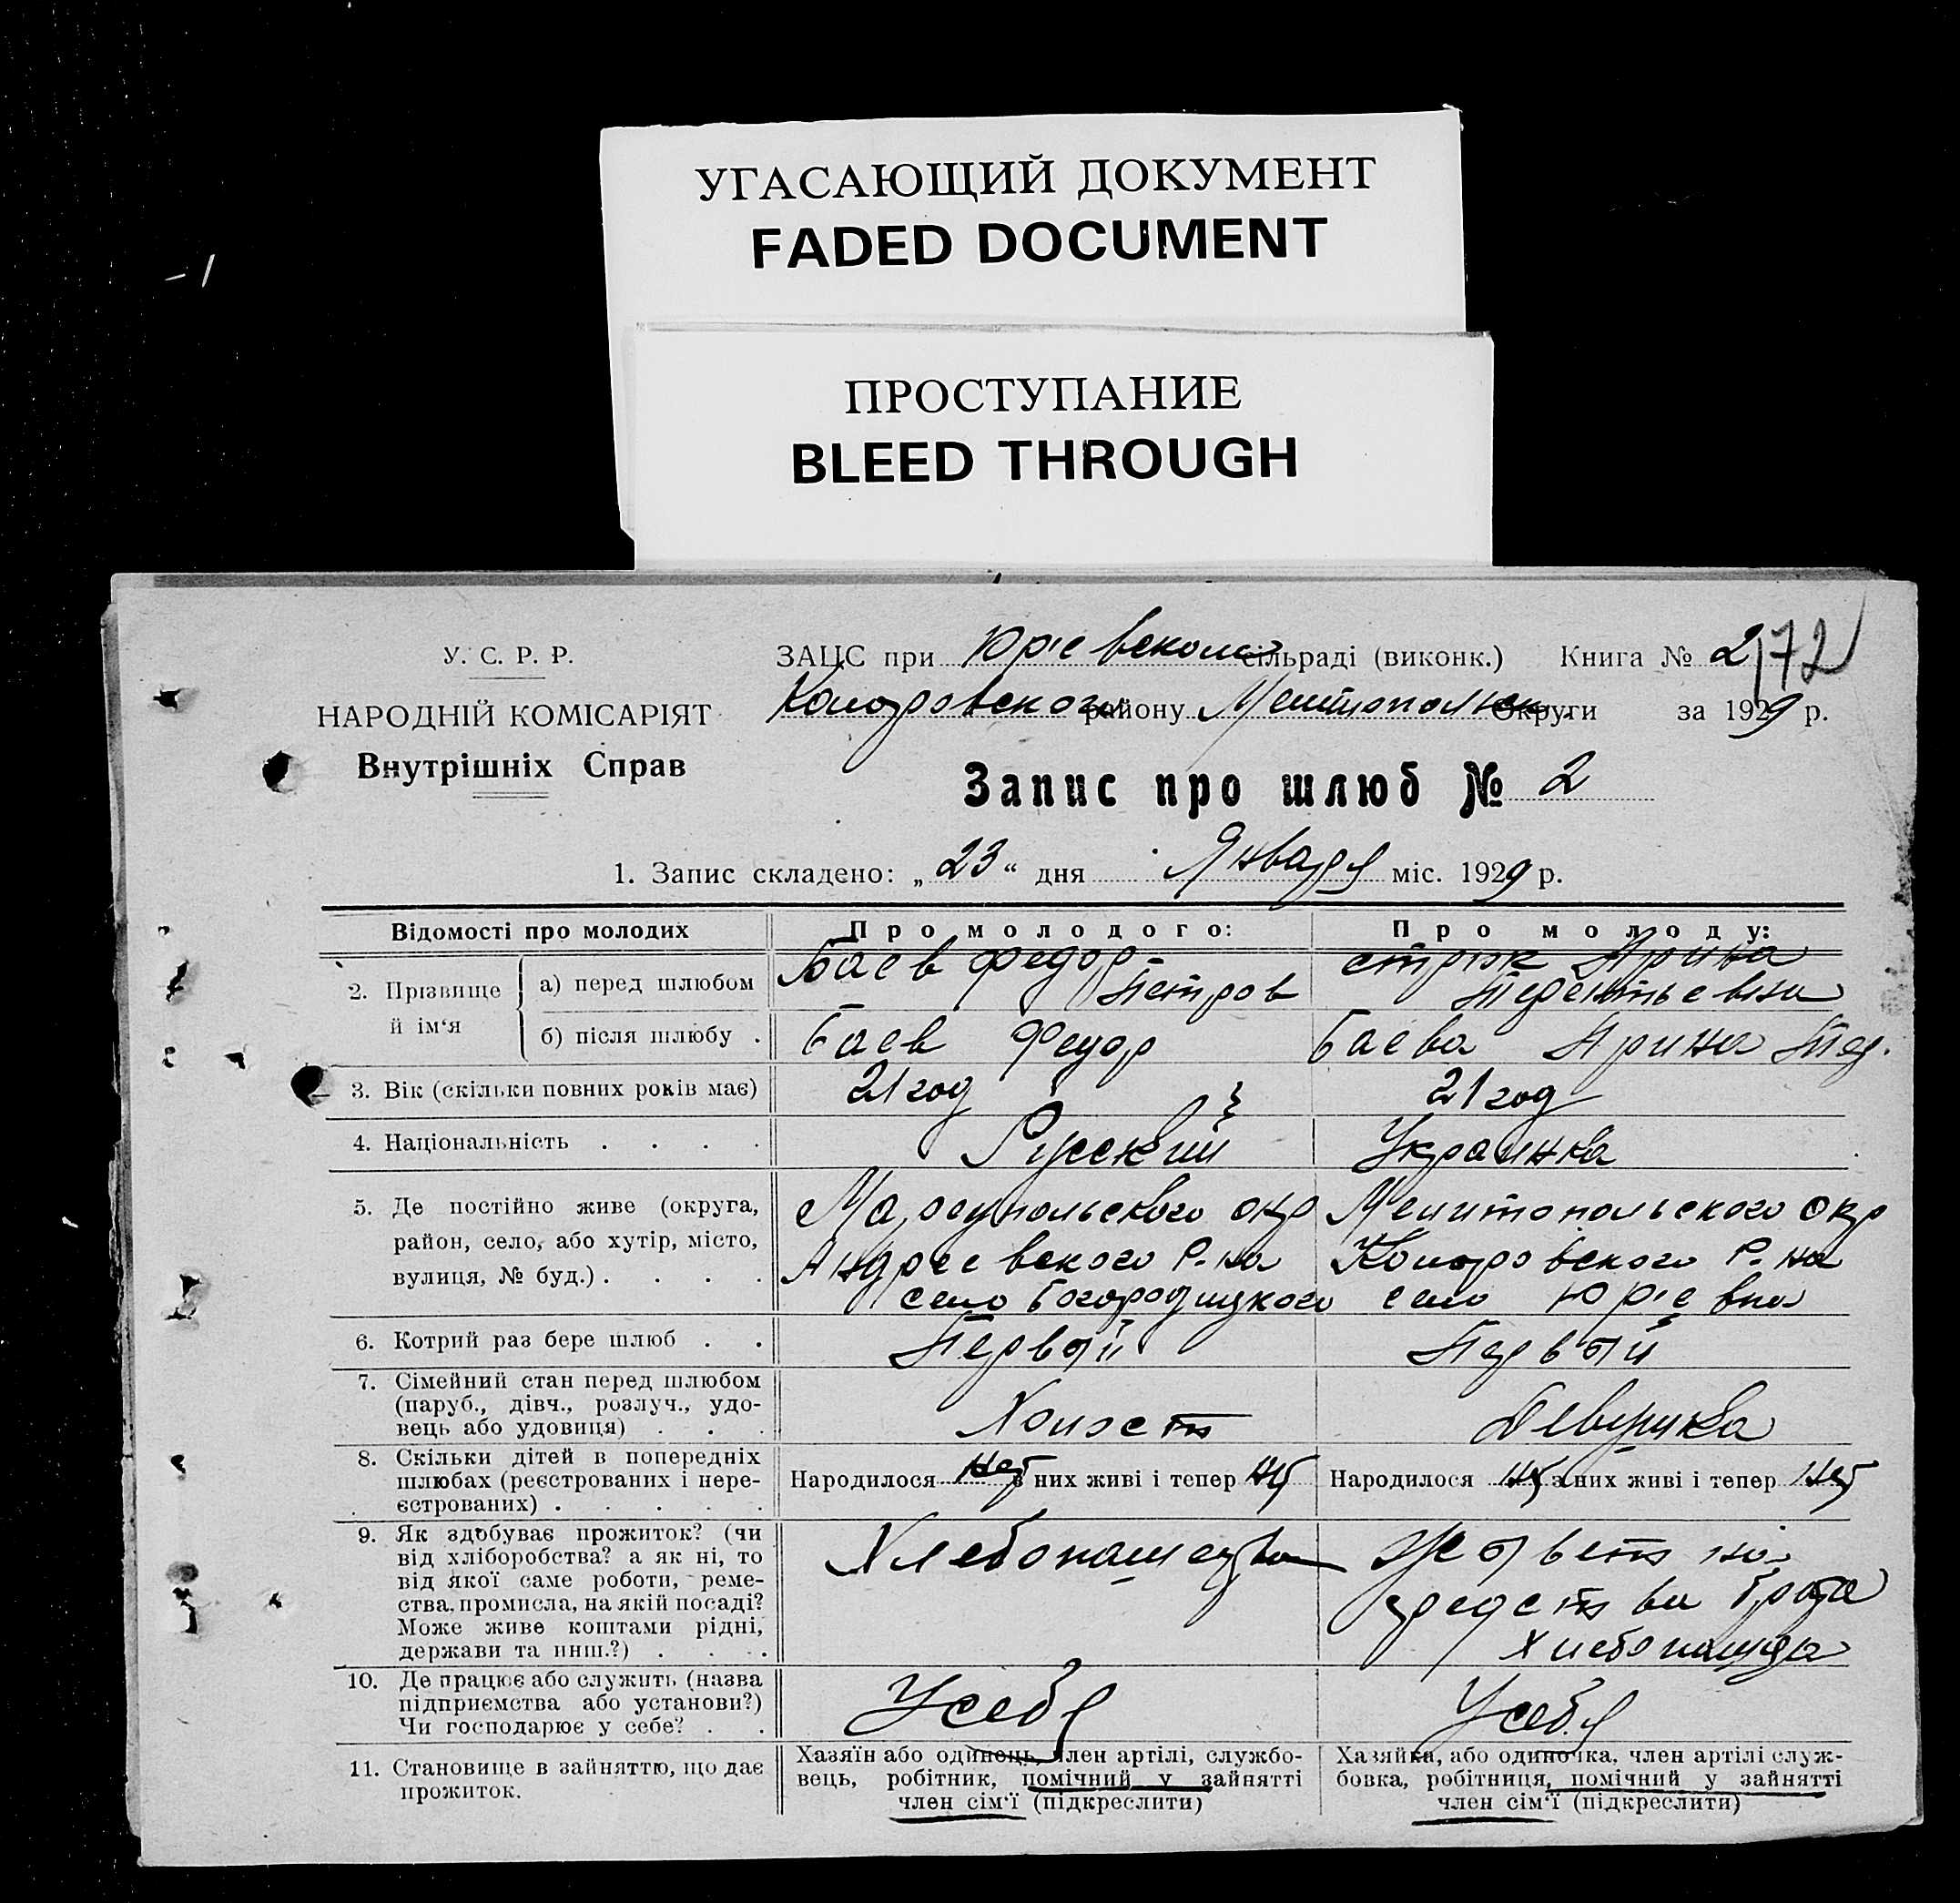 УГАСАЮЩИЙ ДОКУМЕНТ
FADED DOCUMENT
ПРОСТУПАНИЕ
BLEED THROUGH
У. С. Р. Р.
НАРОДНІЙ КОМІСАРІЯТ
Внутрішніх Справ
ЗАЦС при Юр'евском сільраді (виконк.) Книга № 2
172
району Мелитопольск. Округи за 1929 р.
Запис про шлюб № 2
1. Запис складено: „23“ дня Января міс. 1929 р.
Відомості про молодих
Про молодого:
Про молоду:
2. Прізвище й ім‘я
а) перед шлюбом
Баев Федор
Петров
Арина
б) після шлюбу .
Баев Федор
Баева Арина
3. Вік (скільки повних років має)
21 год
21 год
4. Національність . . . .
Русский
Украинка
5. Де постійно живе (округа,
район, село, або хутір, місто,
вулиця, № буд.) . . . .
Мариупольского окр
Андреевского Р-на
село Богородицкого
Мелитопольского окр
Р-на
село Юр'евка
6. Котрий раз бере шлюб . .
Первый
Первый
7. Сімейний стан перед шлюбом
(паруб., дівч., розлуч., удо-
вець або удовиця) . . .
Холост
Девушка
8. Скільки дітей в попередніх
шлюбах (реєстрованих і нере-
єстрованих) . . . . .
Народилося нет з них живі і тепер нет
Народилося нет з них живі і тепер нет
9. Як здобуває прожиток? (чи
від хліборобства? а як ні, то
від якої саме роботи, реме-
ства, промисла, на якій посаді?
Може живе коштами рідні,
держави та инш.?) . . . .
Хлебопашество
Живет на
средства брата
хлебопашца
10. Де працює або служить (назва
підприємства або установи?)
Чи господарює у себе? . .
У себя
У себя
11. Становище в зайняттю, що дає
прожиток.
Хазяїн або одинець, член артілі, службо-
вець, робітник, помічний у зайнятті
член сім‘ї (підкреслити)
Хазяйка, або одиночка, член артілі служ-
бовка, робітниця, помічний у зайнятті
член сім‘ї (підкреслити)